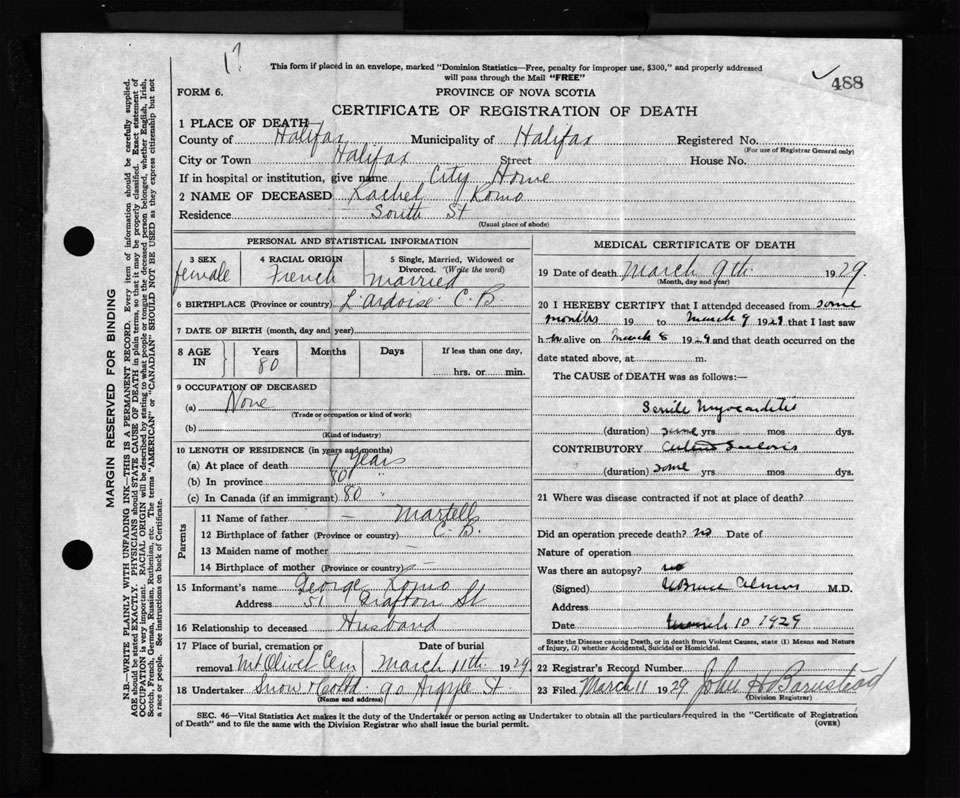 1?
This form if placed in an envelope, marked "Dominion Statistics—Free, penalty for improper use, $300," and properly addressed
will pass through the Mail "FREE"
✓ 488
FORM 6.
PROVINCE OF NOVA SCOTIA
CERTIFICATE OF REGISTRATION OF DEATH
1 PLACE OF DEATH
County of Halifax Municipality of Halifax Registered No.
(For use of Registrar General only)
City or Town Halifax Street House No.
If in hospital or institution, give name City Home
2 NAME OF DECEASED Rachel Romo
Residence South St
(Usual place of abode)
PERSONAL AND STATISTICAL INFORMATION
3 SEX female
4 RACIAL ORIGIN French
5 Single, Married, Widowed or
Divorced. (Write the word)
Married
6 BIRTHPLACE (Province or country) L'ardoise C.B
7 DATE OF BIRTH (month, day and year)
8 AGE IN Years 80 Months Days If less than one day,
hrs. or min.
9 OCCUPATION OF DECEASED
(a) None
(Trade or occupation or kind of work)
(b)
(Kind of industry)
10 LENGTH OF RESIDENCE (in years and months)
(a) At place of death 7 Years
(b) In province 80 "
(c) In Canada (if an immigrant) 80 "
Parents
11 Name of father — Martell
12 Birthplace of father (Province or country) C.B.
13 Maiden name of mother —
14 Birthplace of mother (Province or country) —
15 Informant's name George Romo
Address 51 Grafton St
16 Relationship to deceased Husband
17 Place of burial, cremation or
removal Mt Olivet Cem
Date of burial
March 11th 1929
18 Undertaker Snow & Co Ltd. 90 Argyle St.
(Name and address)
MEDICAL CERTIFICATE OF DEATH
19 Date of death March 9th 1929
(Month, day and year)
20 I HEREBY CERTIFY that I attended deceased from some
months 19 to March 9 1929 that I last saw
h er alive on March 8 1929 and that death occurred on the
date stated above, at m.
The CAUSE of DEATH was as follows:—
Senile Myocarditis
(duration) some yrs mos dys.
CONTRIBUTORY
(duration) some yrs mos dys.
21 Where was disease contracted if not at place of death?
Did an operation precede death? no Date of
Nature of operation
Was there an autopsy? no
(Signed) M.D.
Address
Date March 10 1929
State the Disease causing Death, or in death from Violent Causes, state (1) Means and Nature
of Injury, (2) whether Accidental, Suicidal or Homicidal.
22 Registrar's Record Number
23 Filed March 11 1929 John H Barnstead
(Division Registrar)
SEC. 46—Vital Statistics Act makes it the duty of the Undertaker or person acting as Undertaker to obtain all the particulars required in the "Certificate of Registration
of Death" and to file the same with the Division Registrar who shall issue the burial permit.
(OVER)
MARGIN RESERVED FOR BINDING
N.B.—WRITE PLAINLY WITH UNFADING INK—THIS IS A PERMANENT RECORD. Every item of information should be carefully supplied.
AGE should be stated EXACTLY. PHYSICIANS should STATE CAUSE OF DEATH in plain terms, so that it may be properly classified. Exact statement of
OCCUPATION is very important. RACIAL ORIGIN will be described by stating to what people or tongue the deceased person belonged, whether English, Irish,
Scotch, French, German, Russian, Ruthenian, etc. The terms "AMERICAN" or "CANADIAN" SHOULD NOT BE USED as they express citizenship but not
a race or people. See instructions on back of Certificate.